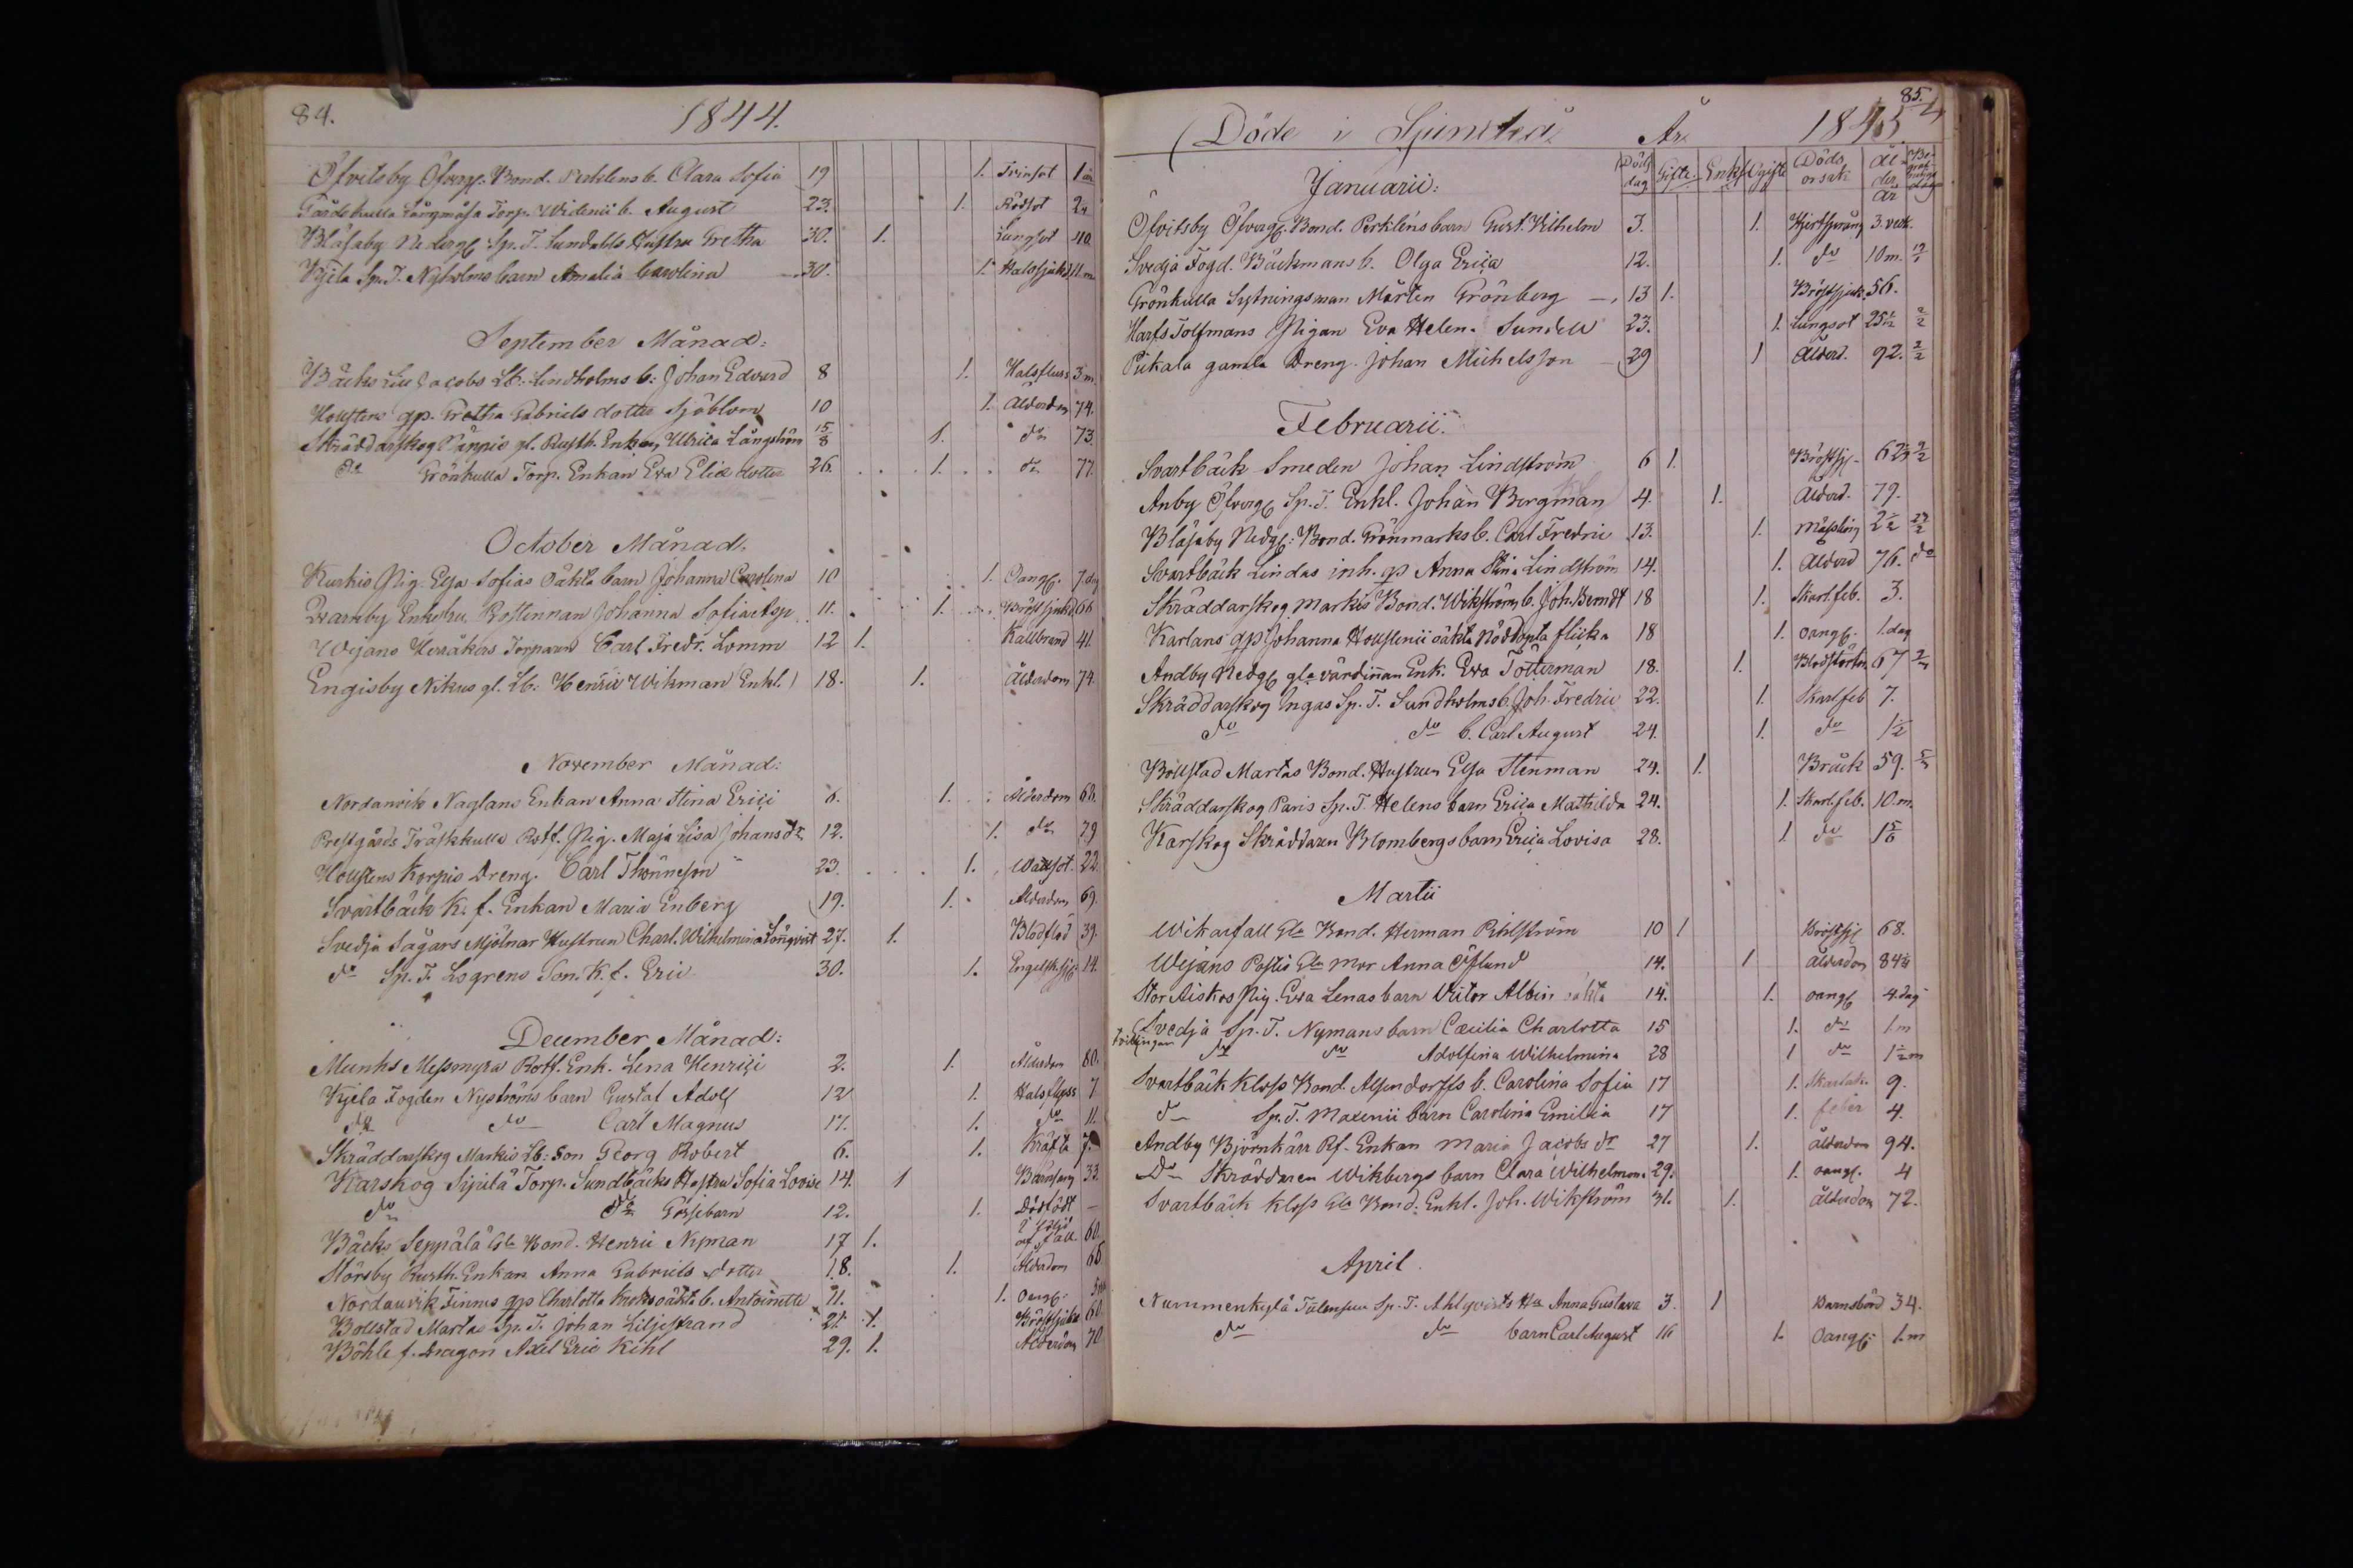 84.
1844.
Öfvitsby Öfvergl. Bond. Perklens b. Clara Sofia 19 1. Tvinsot 1 år
Gårdskulla Långmåsa Torp. Widenii b. August 23. 1. Rödsot 2
Blåsaby Nedergl Sp. T. Sundahls Hustru Gretha 30. 1. Lungsot 40.
Kyila Sp. T. Nyholms barn Amalia Carolina 30. 1. Halssjuk 11.m
September Månad:
Bäcks Jacobs Lb: Lindholms b: Johan Edvard 8 1. Halsfluss 3 m
gp. Gretha Gabriels dotter Sjöblom 10 1. Ålderdom 74.
Skräddarskog gl. Rusth. Enkan Ulrica Långström 15/8 1. do 73.
do Grönkulla Torp. Enkan Eva Elia dotter 26. 1. do 77.
October Månad.
Kurkis Pig. Elsa Sofias Oäkta barn Johanna Carolina 10 1. Oangl. 7.dg
Qvarnby Enkehu. Bostinman Johanna Sofia Asp 11. 1. Bröstsjukd 66
Wejans Torparen Carl Fredr. Lomm 12 1. Kallbrand 41.
Engisby Nikus gl. Lb: Henric Wikman Enkl. 18. 1. Ålderdom 74.
November Månad:
Nordanvik Naglans Enkan Anna Stina Erici 6. 1. Ålderdom 68.
Prestgårds Träskkulla Rott. Pig. Maja Lisa Johans dr 12. 1. do 79
Korpis Dreng. Carl Thönneson 23. 1. Wattsot. 22.
Svartbäck K. f. Enkan Maria Enberg 19. 1. Ålderdom 69.
Svedja Sågars Mjölnar Hustrun Charl. Wilhelmina Lönnqvist 27. 1. Blodflöd 39.
do Sp. T. Logrens Son. K. f. Eric 30. 1. Engelsk.sj. 14.
December Månad:
Munks Messmyra Rott. Enk. Lena Henrici 2. 1. Ålderdom 80.
Kyila Fogden Nyströms barn Gustaf Adolf 12 1. Halsflyss 7
do do Carl Magnus 17. 1. do 11.
Skräddarskog Markis Lb: Son Georg Robert 6. 1. Kräfta 7.
Karskog Sipilä Torp. Sundbäcks Hustru Sofia Lovisa 14. 1 Barnsäng 33.
do do Gossebarn 12. 1. Dödfödt —
Bäcks Seppälä Gla Bond. Henric Nyman 17 1. af fall 60.
Störsby Rusth. Enkan Anna Gabriels dotter 18. 1. Ålderdom 65
Nordanvik Finnis gp Charlotta oäkta b. Antoinette 21. 1. Oangl.
Bollstad Martas Sp. T. Johan Liljestrand 21. 1. Bröstsjukd 60
Böhle f. Dragon Axel Eric Kihl 29. 1. Ålderdom 70
85.
Döde i Sjundeå År 1845
Januarii:
Döds dag Gifte. Enkl Ogifte Döds orsak Ålder år Begrafnings dag
Öfvitsby Öfvergl. Bond. Perkléns barn Gust. Vilhelm 3. 1. Hjertsprång 3. veck.
Svedja Fogd. Bäckmans b. Olga Erica 12. 1. do 10 m. 19/1
Grönkulla Sytningsman Mårten Grönberg — 13 1. Bröstsjuk. 56.
Harfs Tolfmans Pigan Eva Helen. Sundell 23. 1. Lungsot 25 2/2
Pikala gamla Dreng. Johan Michelsson — 29 1 Ålderd. 92. 2/2
Februarii.
Svartbäck Smeden Johan Lindström 6 1. Bröstsj. 62 9/2
Anby Öfvergl Sp. T. Enkl. Johan Bergman 4. 1. Ålderd. 79.
Blåsaby Nedgl: Bond. Grönmarks b. Carl Fredric 13. 1. Messling 2 1/2
Svartbäck Lindas inh. gp Anna Stina Lindström 14. 1. Ålderd 76. do
Skräddarskog Markis Bond. Wikströms b. Joh. Berndt 18 1. Skarl.feb. 3.
Karlans gp Johanna oäkta nöddöpta flicka 18 1. oangl. 1.dag
Andby Nedgl gla värdinnan Enk. Eva Tötterman 18. 1. Blodstörtn. 67
Skräddarskog Ingas Sp. T. Sundholms b. Joh. Fredric 22. 1. Skarl.feb 7.
do do b. Carl August 24. 1. do 1 1/2
Böllstad Martas Bond. Hustrun Elsa Stenman 24. 1. Bråck 59.
Skräddarskog Paris Sp. T. Helens barn Erica Mathilda 24. 1. Skarl.feb. 10.m.
Karskog Skräddaren Blombergs barn Erica Lovisa 28. 1 do 1 5/6
Martii
Wikarfall Gla Bond. Herman Pihlström 10 1 Bröstsj 68.
Wejans Postis Gla Mor Anna Öflund 14. 1 Ålderdom 84
Stor Aiskos Pig. Eva Lenas barn Victor Albin oäkta 14. 1. oangl 4.dag
Tvillingar Svedja Sp. T. Nymans barn Cecilia Charlotta 15 1. do 1.m
do do Adolfina Wilhelmina 28 1 do 1 1/2 m
Svartbäck Kloss Bond. Alfendorffs b. Carolina Sofia 17 1. Skarlak. 9.
do Sp. T. Maxenii barn Carolina Emilia 17 1. feber 4.
Andby Björnkärr Rf. Enkan Maria Jacobs dr 27 1. ålderdom 94.
do Skräddaren Wikbergs barn Clara Wilhelmina 29. 1. oangl. 4
Svartbäck Kloss Gla Bond. Enkl. Joh. Wikström 31. 1. ålderdom 72.
April
Nummenkylä Sp. T. Ahlqvists Hu Anna Gustava 3. 1 Barnsbörd 34.
do do barn Carl August 16 1. Oangl. 1.m